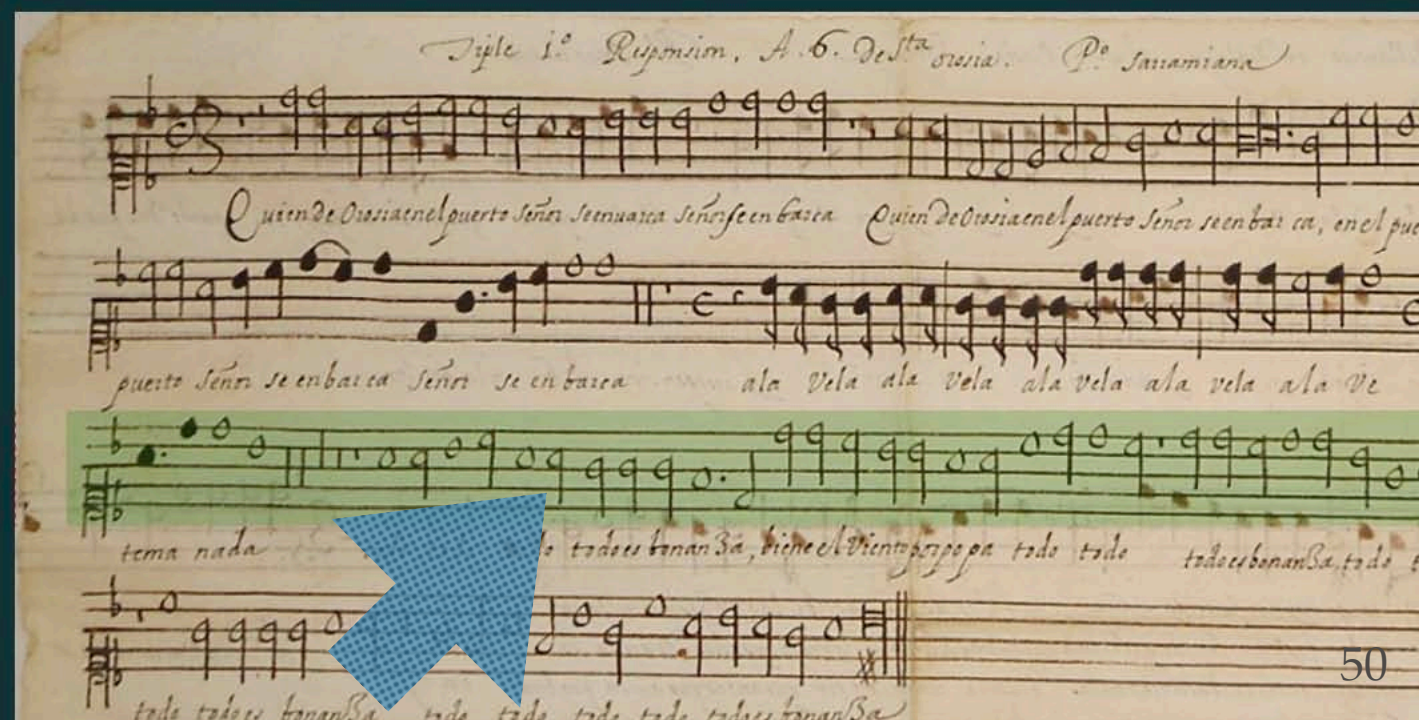 Tiple 1º Responsion, A. 6. De Sta orosia. Pº
Quien de Orosia en el puerto Señor se enuarca Señor se en barca Quien de Orosia en el puerto Señor se en bar ca, en el pue
puerto Señor se en barca Señor se en barca ala Vela ala Vela ala vela ala vela ala Ve
tema nada todo es bonanza, viene el Viento por popa todo todo todo es bonanza, todo
todo todo es bonanza todo todo todo todo todo es bonanza
50